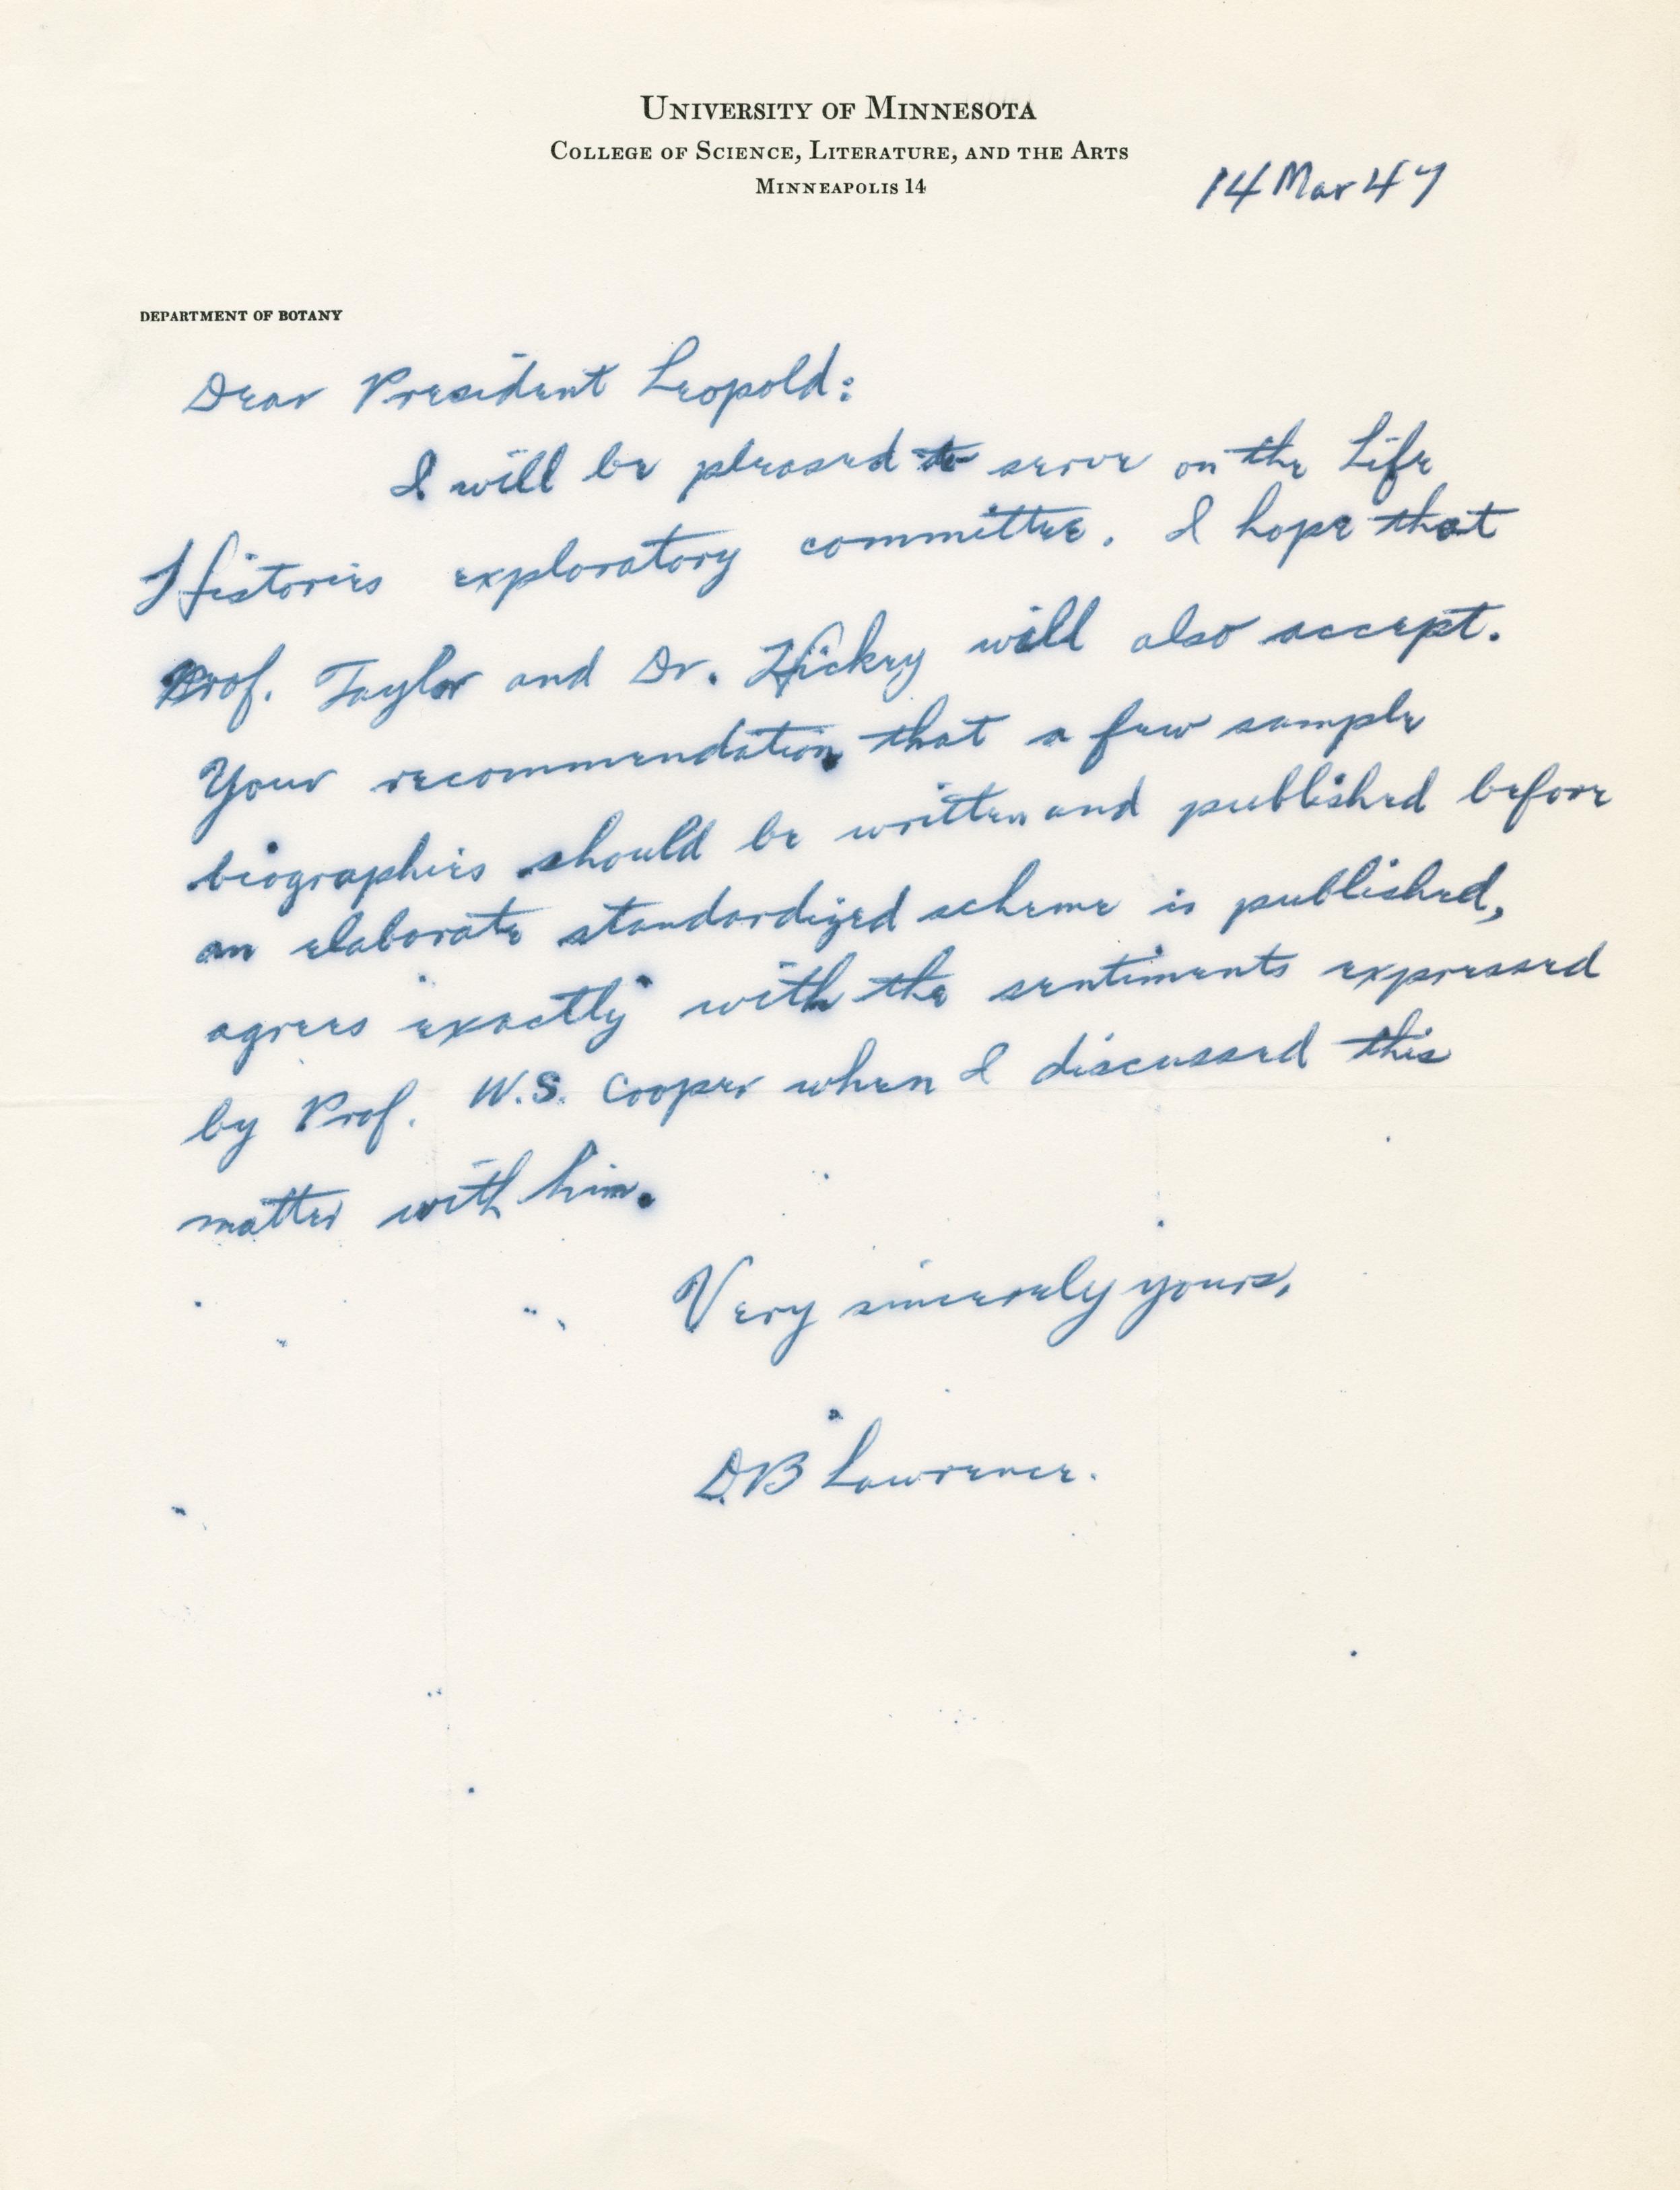 University of Minnesota
College of Science, Literature, and the Arts
Minneapolis 14
14 Mar 47
DEPARTMENT OF BOTANY
Dear President Leopold:
I will be pleased to serve on the Life
Histories exploratory committee. I hope that
Prof. Taylor and Dr. Hickey will also accept.
Your recommendation, that a few sample
biographies should be written and published before
an elaborate standardized scheme is published,
agrees exactly with the sentiments expressed
by Prof. W.S. Cooper when I discussed this
matter with him.
Very sincerely yours,
D.B Lawrence.